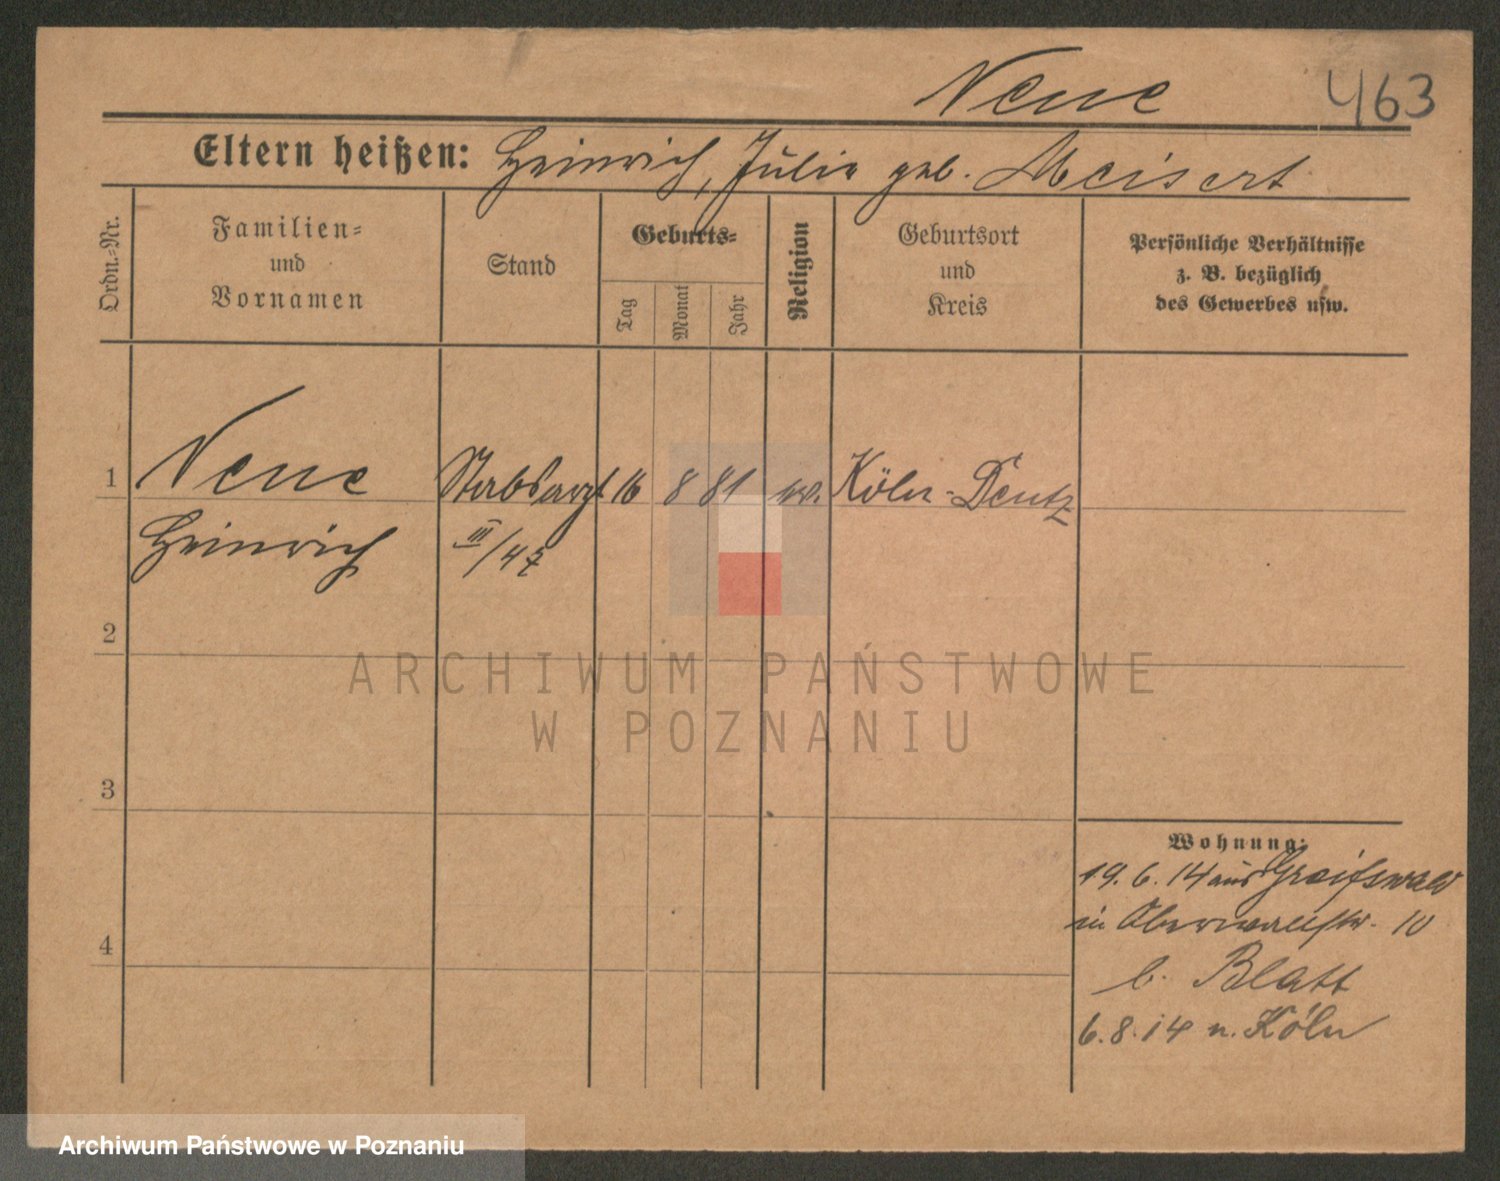 Neue 463
Eltern heißen: Heinrich, Julie geb. Meisert
Ordn.-Nr.
Familien-
und
Vornamen
Stand
Geburts-
Tag
Monat
Jahr
Religion
Geburtsort
und
Kreis
Persönliche Verhältnisse
z. B. bezüglich
des Gewerbes usw.
1 Neue Stabsarzt 16 8 81 ev. Köln-Deutz
Heinrich III/47
2
3
4
Wohnung:
19.6.14 aus Greifswald
in Oberwallstr. 10
b. Blatt
6.8.14 n. Köln
ARCHIWUM PAŃSTWOWE
W POZNANIU
Archiwum Państwowe w Poznaniu